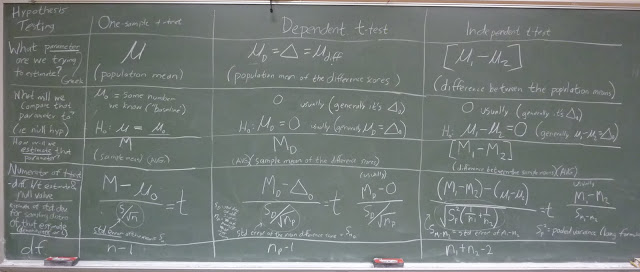 Hypothesis
Testing
One-sample t-test
Dependent t-test
Independent t-test
What parameter
are we trying
to estimate?
Greek
μ
(population mean)
μ_D = Δ = μ_diff
(population mean of the difference scores)
[μ₁ - μ₂]
(difference between the population means)
What will we
compare that
parameter to?
(ie null hyp)
μ₀ = some number
we know ("baseline")
H₀: μ = μ₀
0 usually (generally it's Δ₀)
H₀: μ_D = 0 usually (generally μ_D = Δ₀)
0 usually (generally it's Δ₀)
H₀: μ₁ - μ₂ = 0 (generally μ₁ - μ₂ = Δ₀)
How will we
estimate that
parameter?
M
(sample mean) (AVG)
M_D
(AVG) (sample mean of the difference scores)
[M₁ - M₂]
(difference between the sample means) (AVG)
Numerator of t-test
-diff. b/t estimate &
null value
M - μ₀ / (S/√n) = t
std error
M_D - Δ₀ / (S_D/√n_p) = t
(usually)
M_D - 0 / (S_D/√n_p)
std error of
(M₁ - M₂) - (μ₁ - μ₂) / √(S_p²(1/n₁ + 1/n₂)) = t
usually
M₁ - M₂
S_M₁-M₂ = std error of M₁ - M₂
S_p² = pooled variance
df
n - 1
n_p - 1
n₁ + n₂ - 2